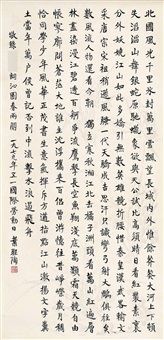 北國風光千里冰封萬里雪飄望長城內外惟餘莽莽大河上下頓
失滔滔山舞銀蛇原馳蠟象欲與天公試比高須晴日看紅裝素裹
分外妖嬈江山如此多嬌引無數英雄競折腰惜秦皇漢武略輸文
采唐宗宋祖稍遜風騷一代天驕成吉思汗只識彎弓射大雕俱往矣
數風流人物還看今朝 獨立寒秋湘江北去橘子洲頭看萬山紅遍層
林盡染漫江碧透百舸爭流鷹擊長空魚翔淺底萬類霜天競自由
悵寥廓問蒼茫大地誰主沉浮攜來百侶曾遊憶往昔崢嶸歲月稠
恰同學少年風華正茂書生意氣揮斥方遒指點江山激揚文字糞
土當年萬戶侯曾記否到中流擊水浪遏飛舟
敬錄
詞沁園春兩闋
年五一國際勞動日 葉聖陶